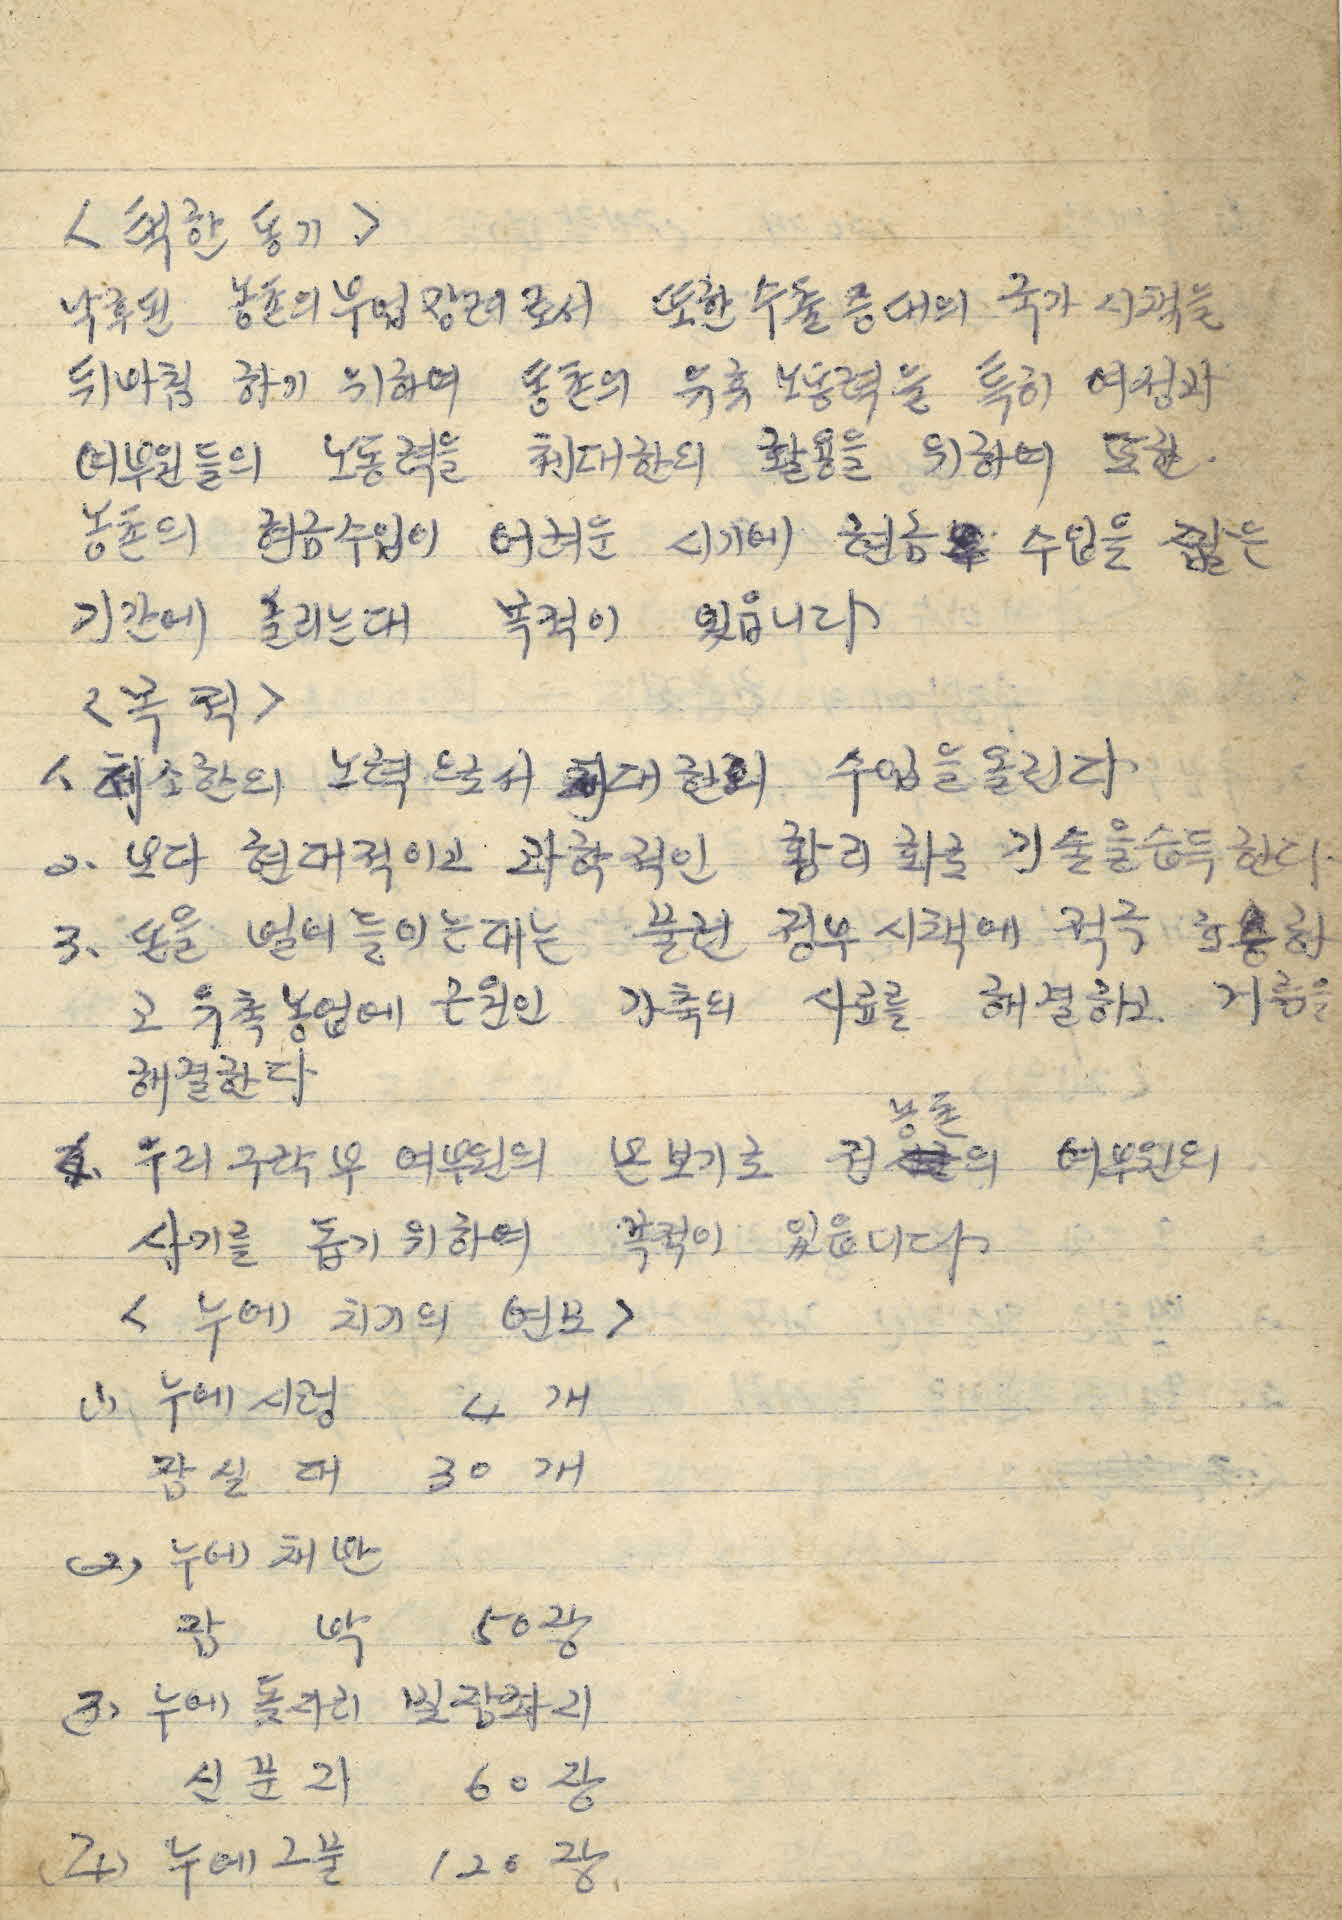 <택한 동기>
낙후된 농촌의 부업 장려로서 또한 수출 증대의 국가 시책을
뒤바침 하기 위하여 농촌의 유휴 노동력을 특히 여성과
여부원들의 노동력을 최대한의 활용을 위하여 또한
농촌의 현금수입이 어려운 시기에 현금 수입을 짧은
기간에 올리는대 목적이 있읍니다
<목적>
1. 최소한의 노력으로서 최대한의 수입을 올린다
2. 보다 현대적이고 과학적인 황리화로 기술을 습득한다.
3. 돈을 벌어들이는대는 물런 정부시책에 적극 호응하
고 유축농업에 근원인 가축의 사료를 해결하고 거름을
해결한다
4. 우리 구락부 여부원의 본보기로 전 농촌의 여부원의
사기를 돕기 위하여 목적이 있읍니다
< 누에 치기의 연모 >
(1) 누에시렁 4 개
잠실대 30 개
(2) 누에 채반
잠 박 50장
(3) 누에 돗자리 빌장자리
신문지 60장
(4) 누에그물 120장